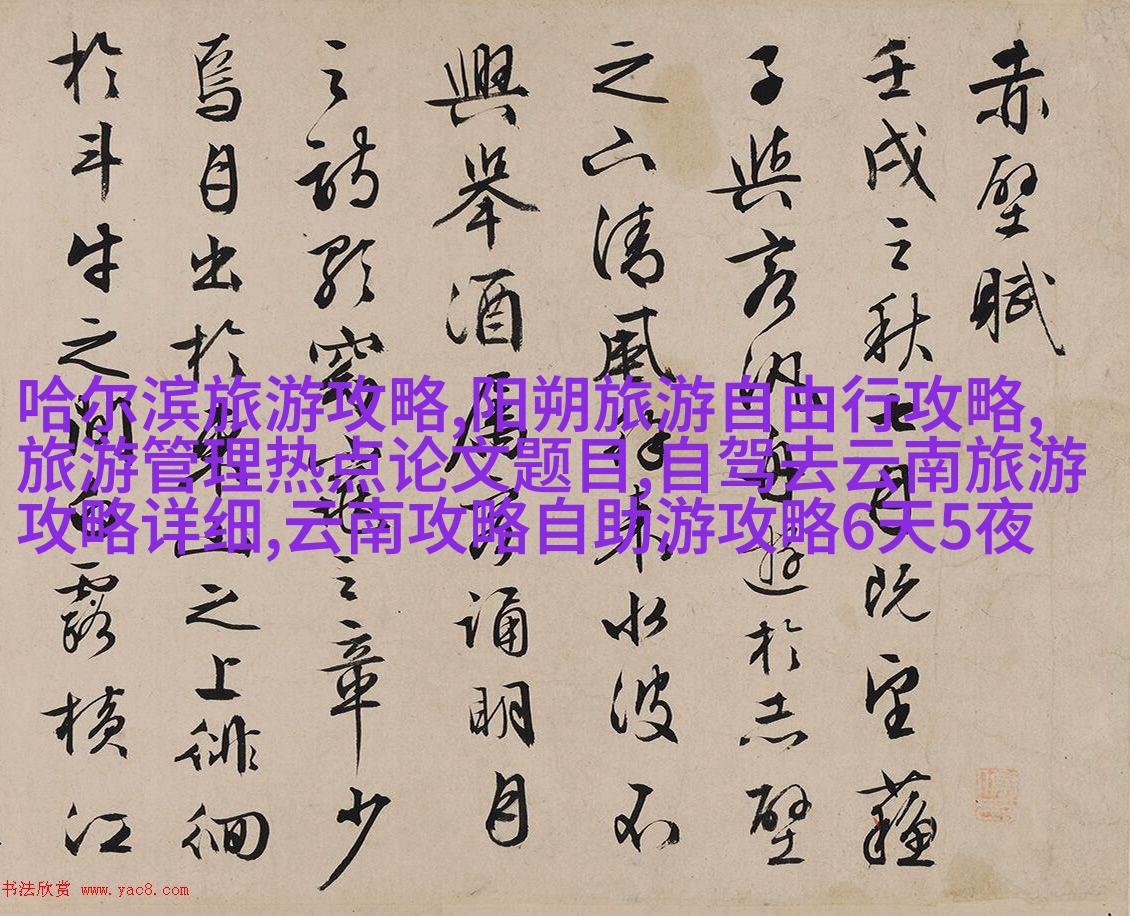 赤壁賦
壬戌之秋七月既望蘓
子與客汎舟遊於赤壁
之下清風徐來水波不
興舉酒屬客誦明月
之詩歌窈窕之章少
焉月出於東山之上徘徊
於斗牛之間白露橫江
哈尔滨旅游攻略,阳朔旅游自由行攻略,
旅游管理热点论文题目,自驾去云南旅游
攻略详细,云南攻略自助游攻略6天5夜
书法欣赏 www.yac8.com